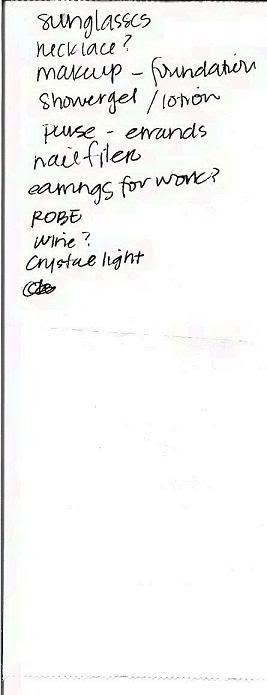 sunglasses
necklace?
makeup - foundation
showergel / lotion
purse - errands
nail filer
earrings for work?
ROBE
wine?
crystal light